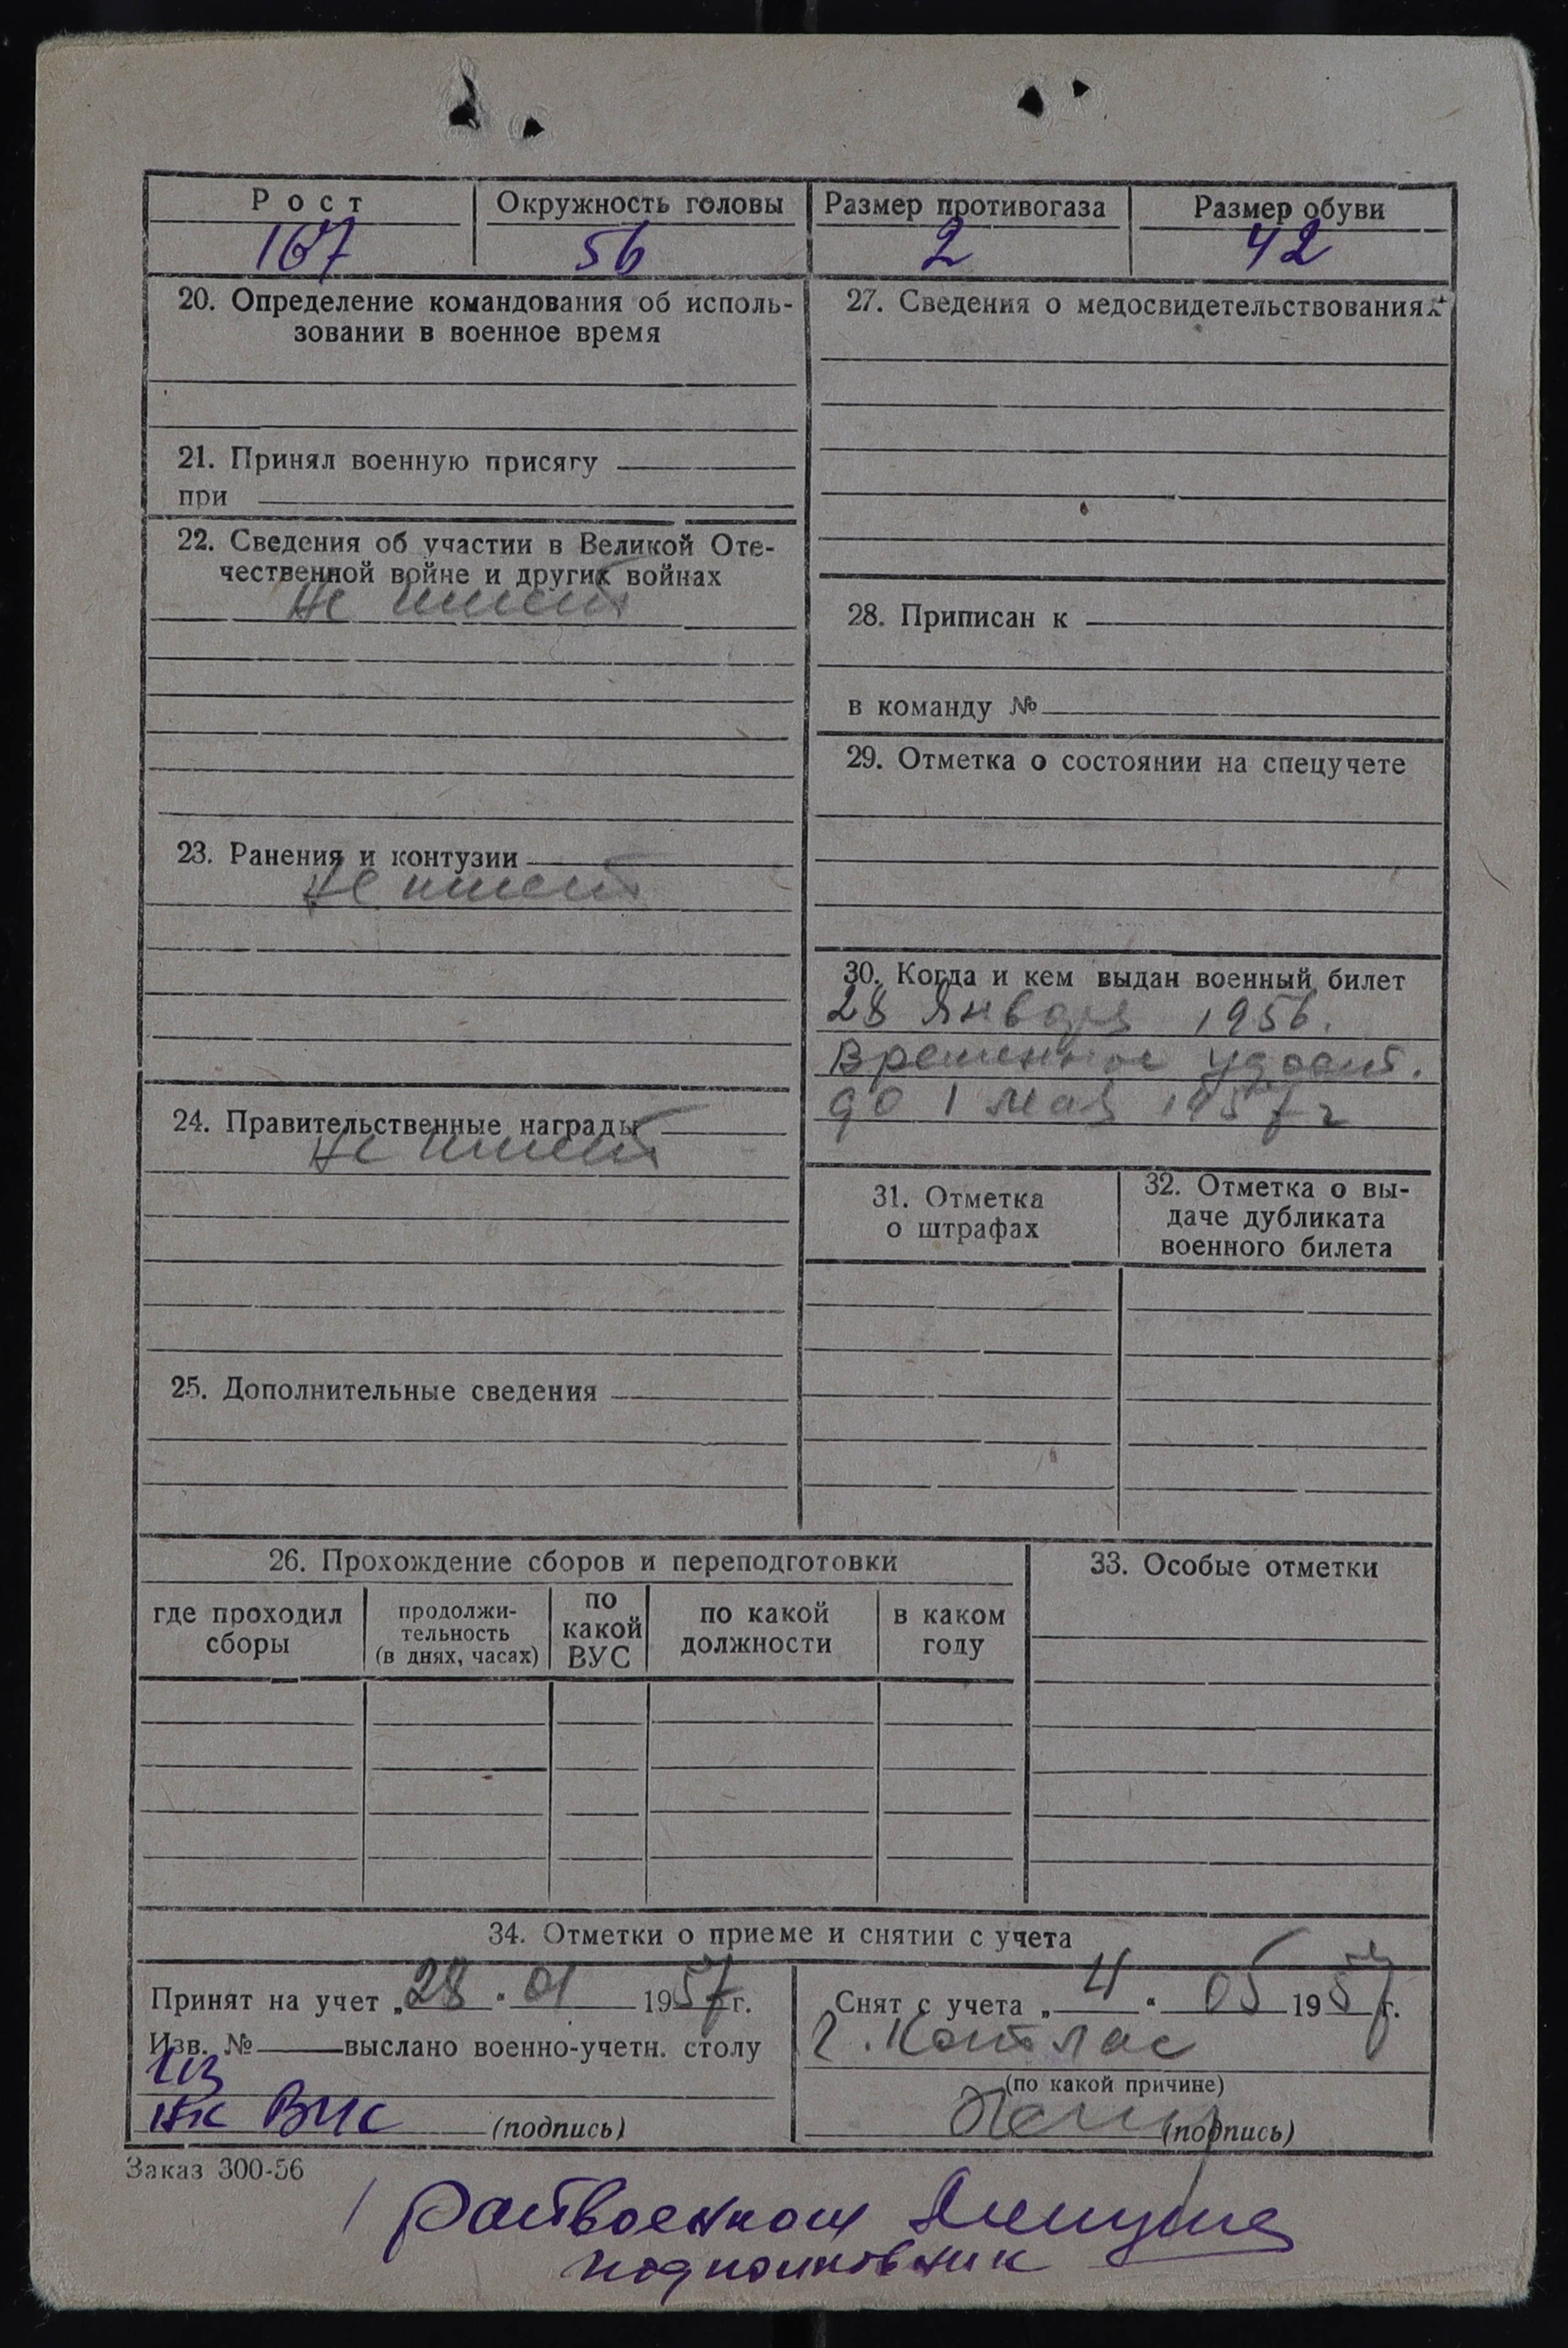 Рост
Окружность головы
Размер противогаза
Размер обуви
167
56
2
42
20. Определение командования об исполь-
зовании в военное время
21. Принял военную присягу
при
22. Сведения об участии в Великой Оте-
чественной войне и других войнах
Не имеет
23. Ранения и контузии
Не имеет
24. Правительственные награды
Не имеет
25. Дополнительные сведения
27. Сведения о медосвидетельствованиях
28. Приписан к
в команду №
29. Отметка о состоянии на спецучете
30. Когда и кем выдан военный билет
28 января 1956.
Временное удост.
до 1 мая 1957 г
31. Отметка
о штрафах
32. Отметка о вы-
даче дубликата
военного билета
26. Прохождение сборов и переподготовки
где проходил
сборы
продолжи-
тельность
(в днях, часах)
по
какой
ВУС
по какой
должности
в каком
году
33. Особые отметки
34. Отметки о приеме и снятии с учета
Принят на учет „28" 01 1957 г.
Изв. № выслано военно-учетн. столу
(подпись)
Снят с учета „4" 05 1957 г.
г. Котлас
(по какой причине)
(подпись)
Заказ 300-56
Райвоенком
подполковник